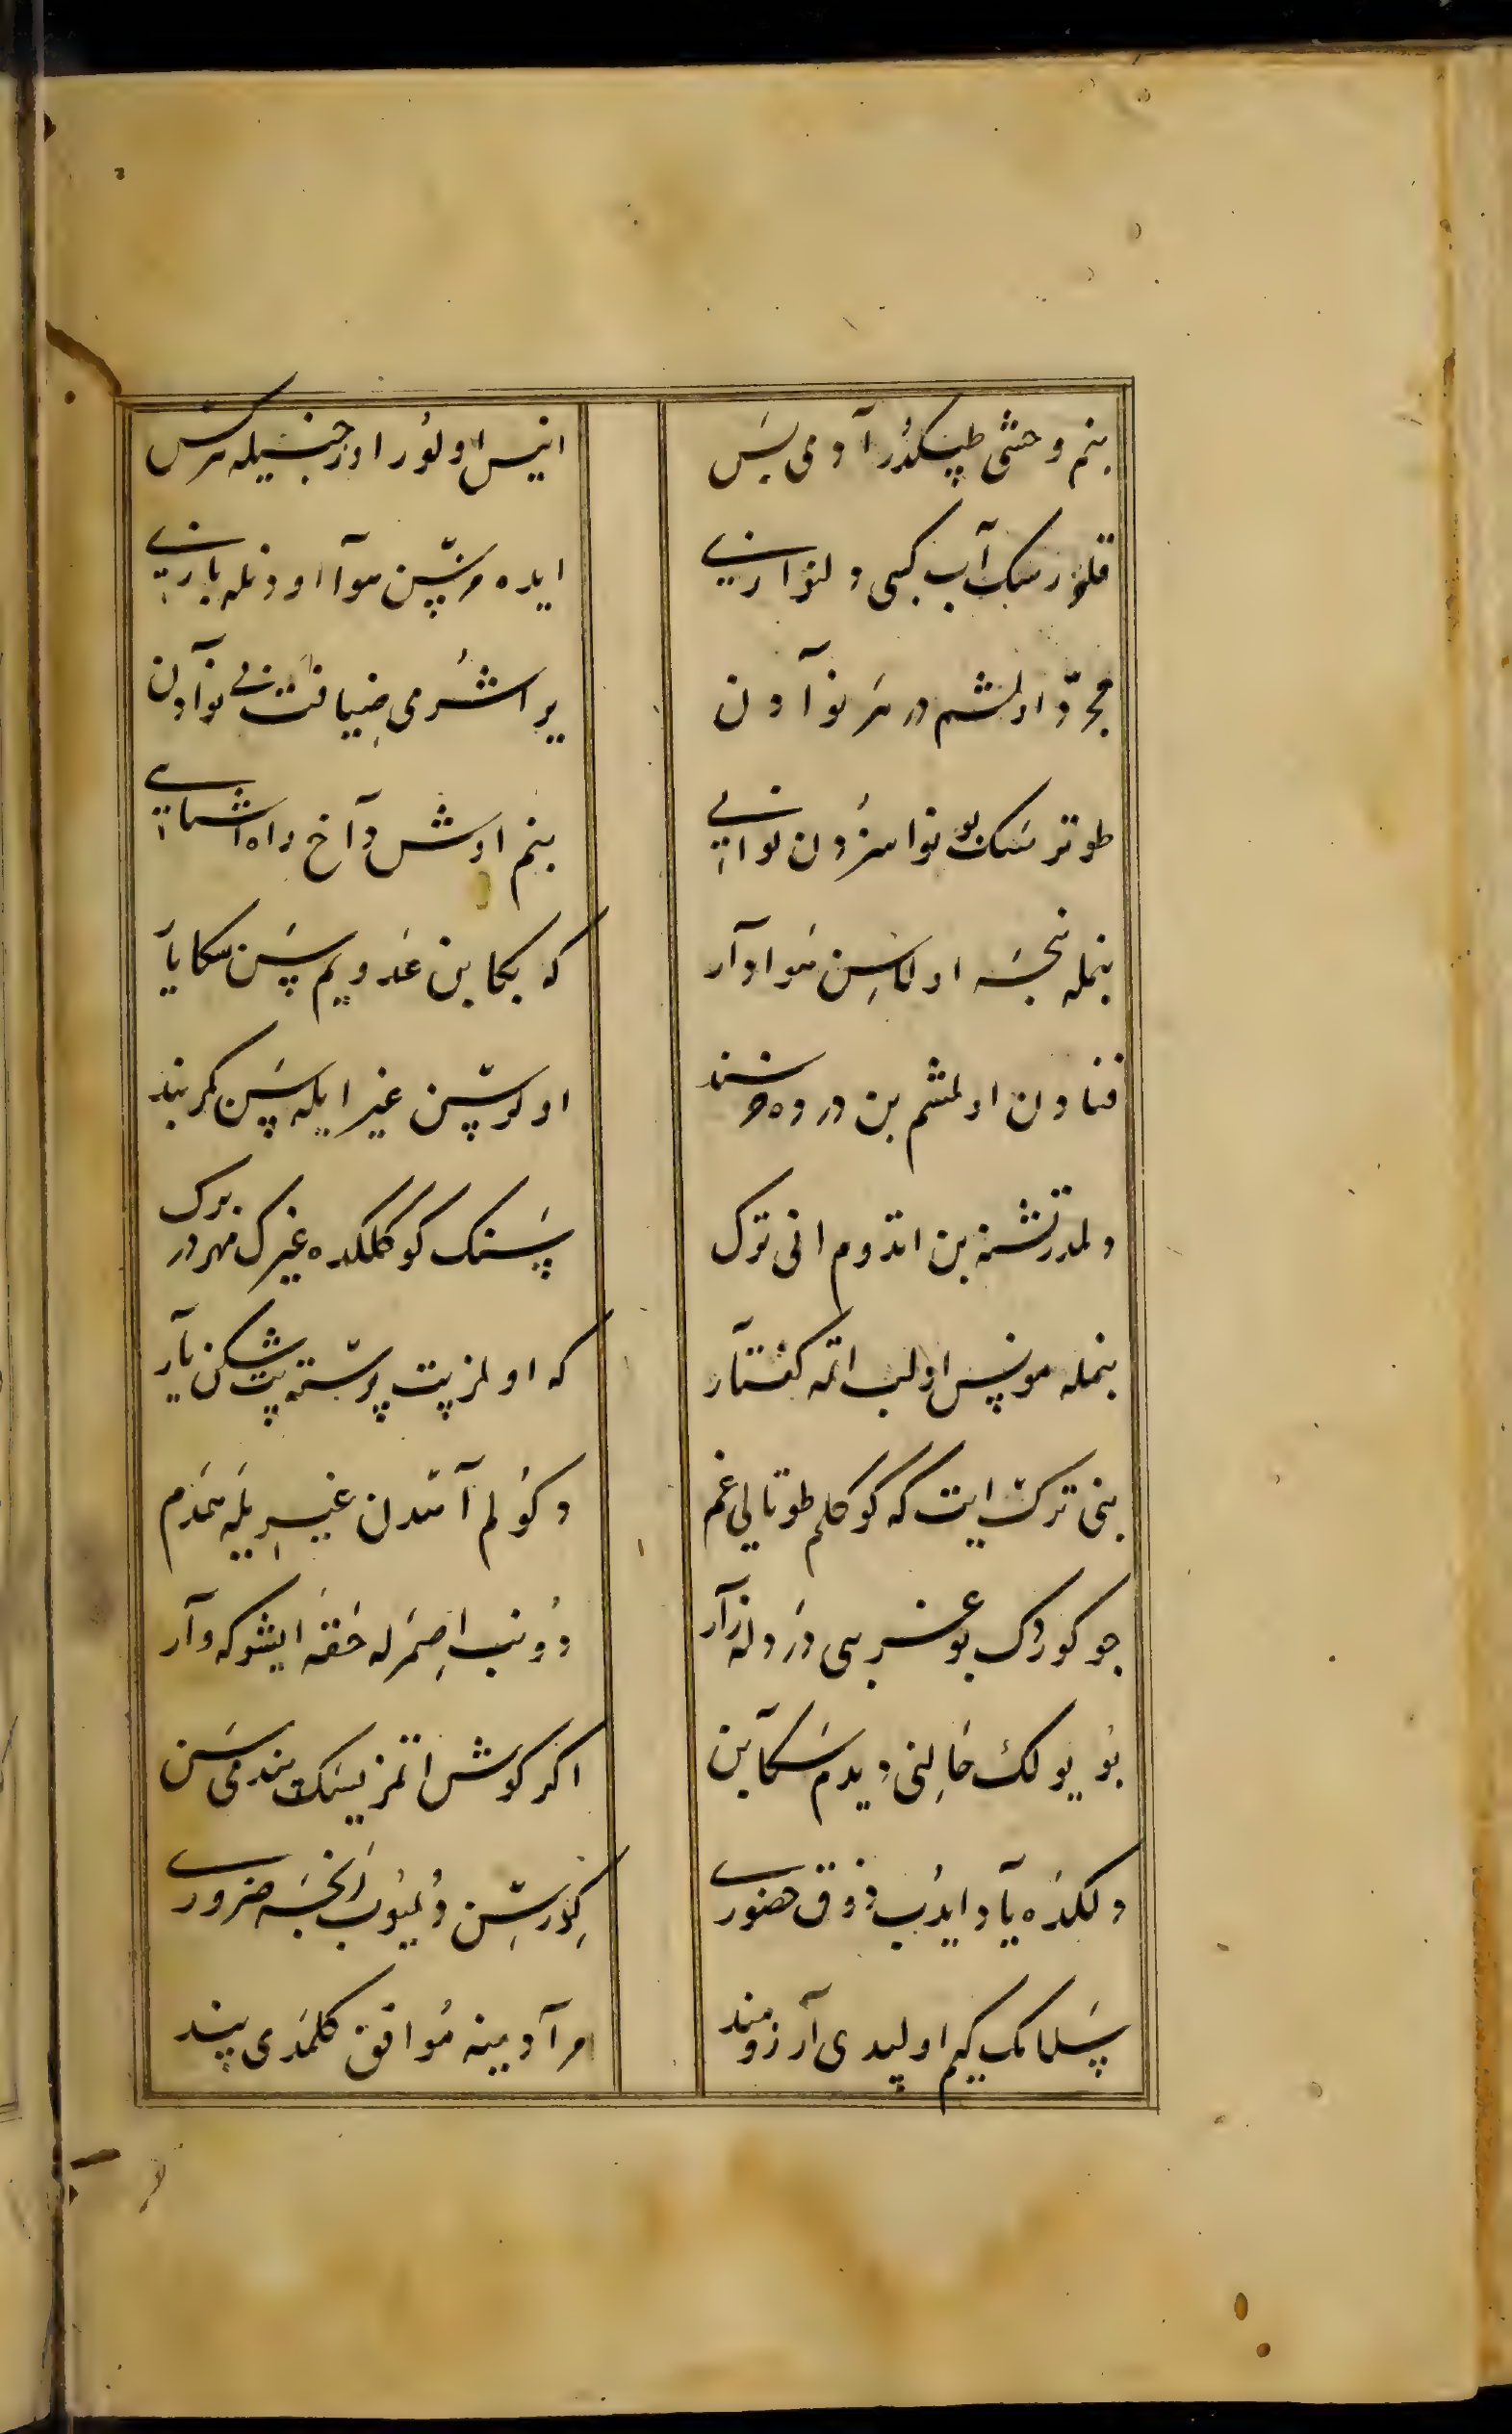 بنم وحشی طپکدر آدمی بس انیس اولور اوز جنسیله هرکس
قلورسک آب کبی دلنوازی ایده مرسن هوا اودیله بازی
مجرّد اولمشم در هر نوادن یراشرمی ضیافت بی نوادن
طوترسک بو نوا سزدن نوایی بنم اوش داخ راه آشنایی
بنمله نجسه اولاسن هوادار که بکا بن عدویم سن سکا یار
فنادن اولمشم بن درده خرسند اولورسن غیر ایله سن کمربند
ولمدر نسنه بن اتدوم انی ترک سنک کوکلکده غیرک مهری در برک
بنمله مونس اولب اتمه کفتار که اولمز بت پرسته بت شکن یار
بنی ترک ایت که کوکلم طوتالی غم دکولم آندن غیریله همدم
چو کوردک بو غریبی درد و له زار دونب اصمرله حقه ایشوکه وار
بو یولک حالنی دیدم سکا بن اکر کوش اتمزیسک پندمی سن
دلکده یاد ایدب ذوق حضوری کوررسن دلیوب انجسه ضروری
سلامک کیم اولیدی آرزومند مرادینه موافق کلمدی پند